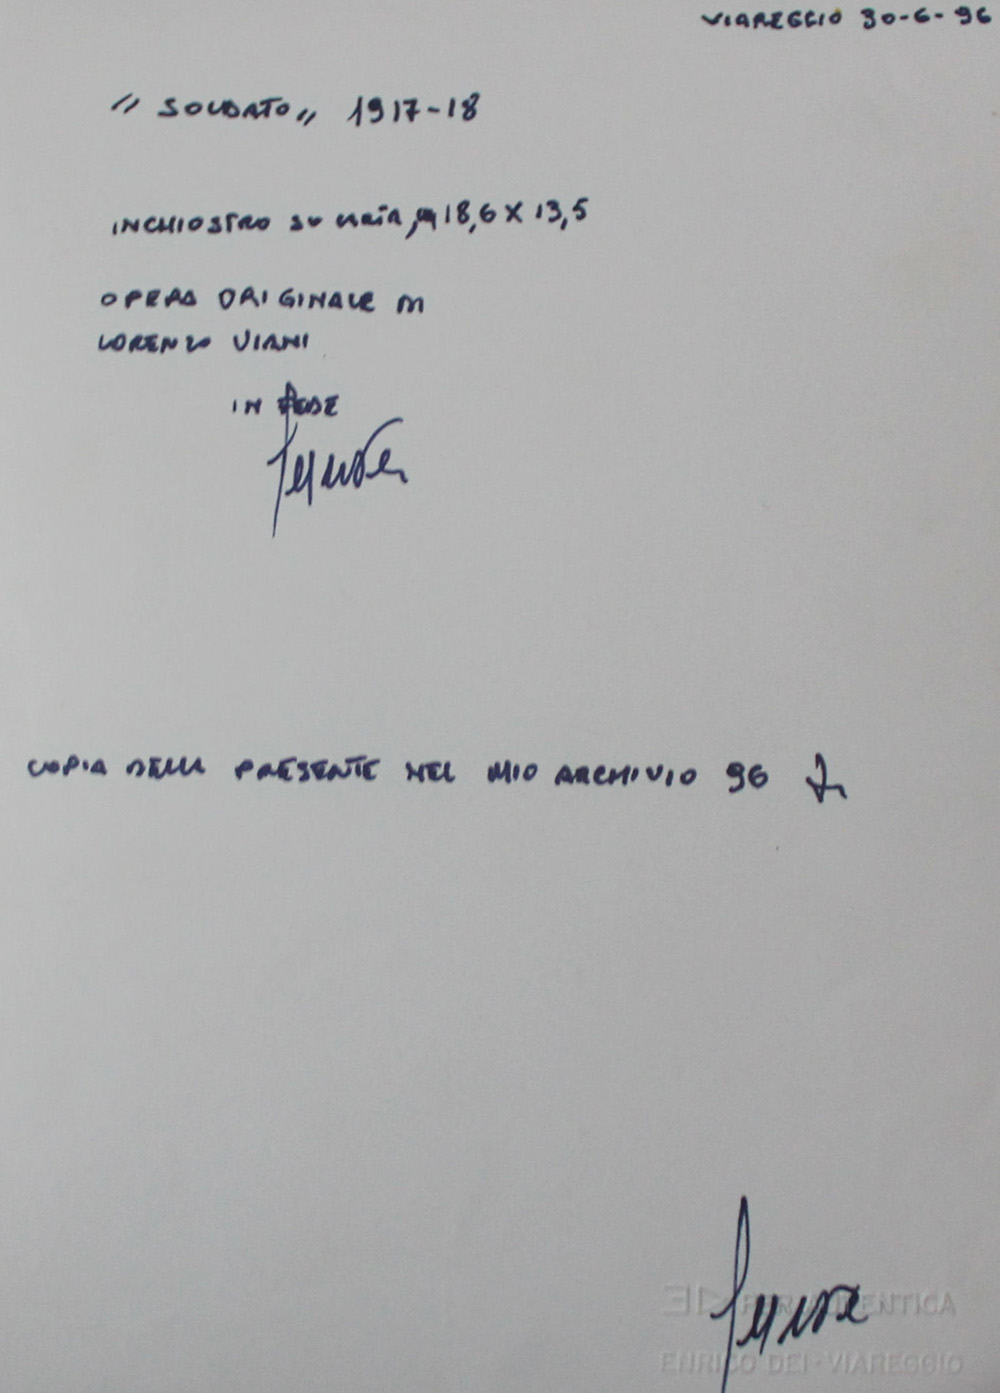 VIAREGGIO 30-6-96
" SOLDATO " 1917-18
INCHIOSTRO SU CARTA, 18,6 X 13,5
OPERA ORIGINALE DI
LORENZO VIANI
IN FEDE
COPIA DELLA PRESENTE NEL MIO ARCHIVIO 96
PER AUTENTICA
ENRICO DEI · VIAREGGIO